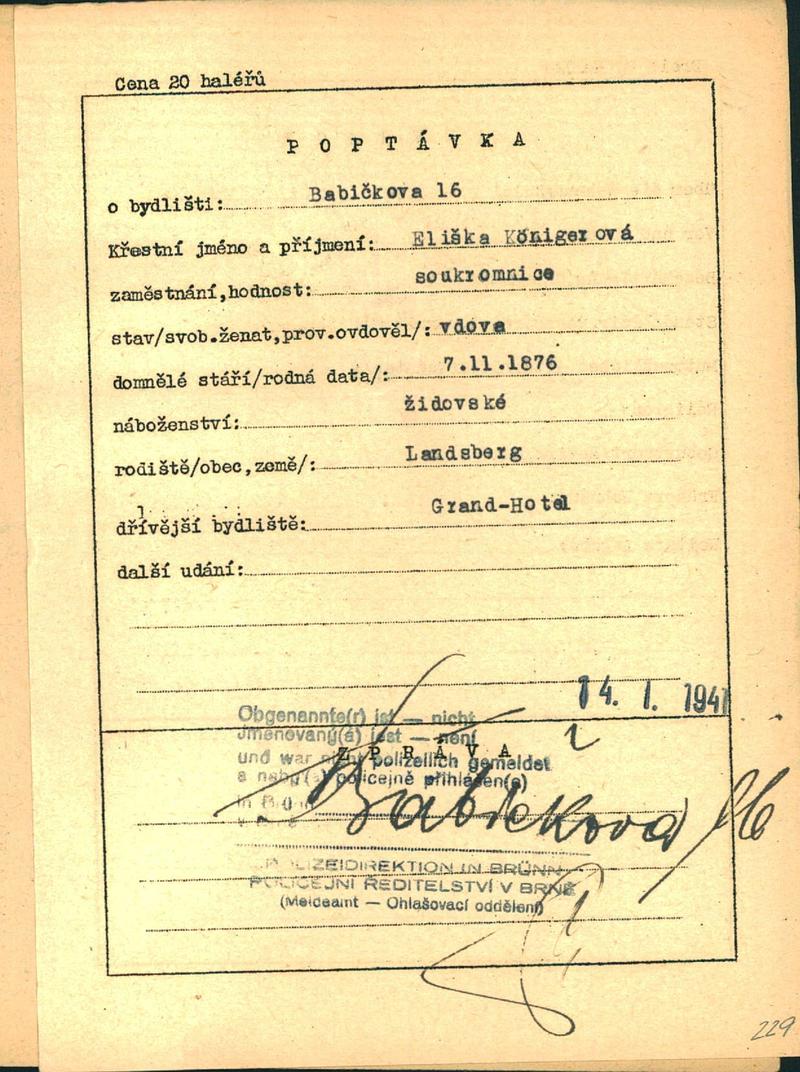 Cena 20 haléřů
POPTÁVKA
o bydlišti: Babičkova 16
Křestní jméno a příjmení: Eliška Königerová
zaměstnání,hodnost: soukromnice
stav/svob.ženat,prov.ovdověl/: vdova
domnělé stáří/rodná data/: 7.11.1876
náboženství: židovské
rodiště/obec,země/: Landsberg
dřívější bydliště: Grand-Hotel
další udání:
14. I. 1941
Obgenannte(r) ist — nicht
Jmenovaný(á) jest — není
ZPRÁVA
und war nicht polizeilich gemeldet
a nebyl(a) policejně přihlášen(a)
in Brünn
Babičkova 16
POLIZEIDIREKTION IN BRÜNN
POLICEJNÍ ŘEDITELSTVÍ V BRNĚ
(Meldeamt — Ohlašovací oddělení)
229